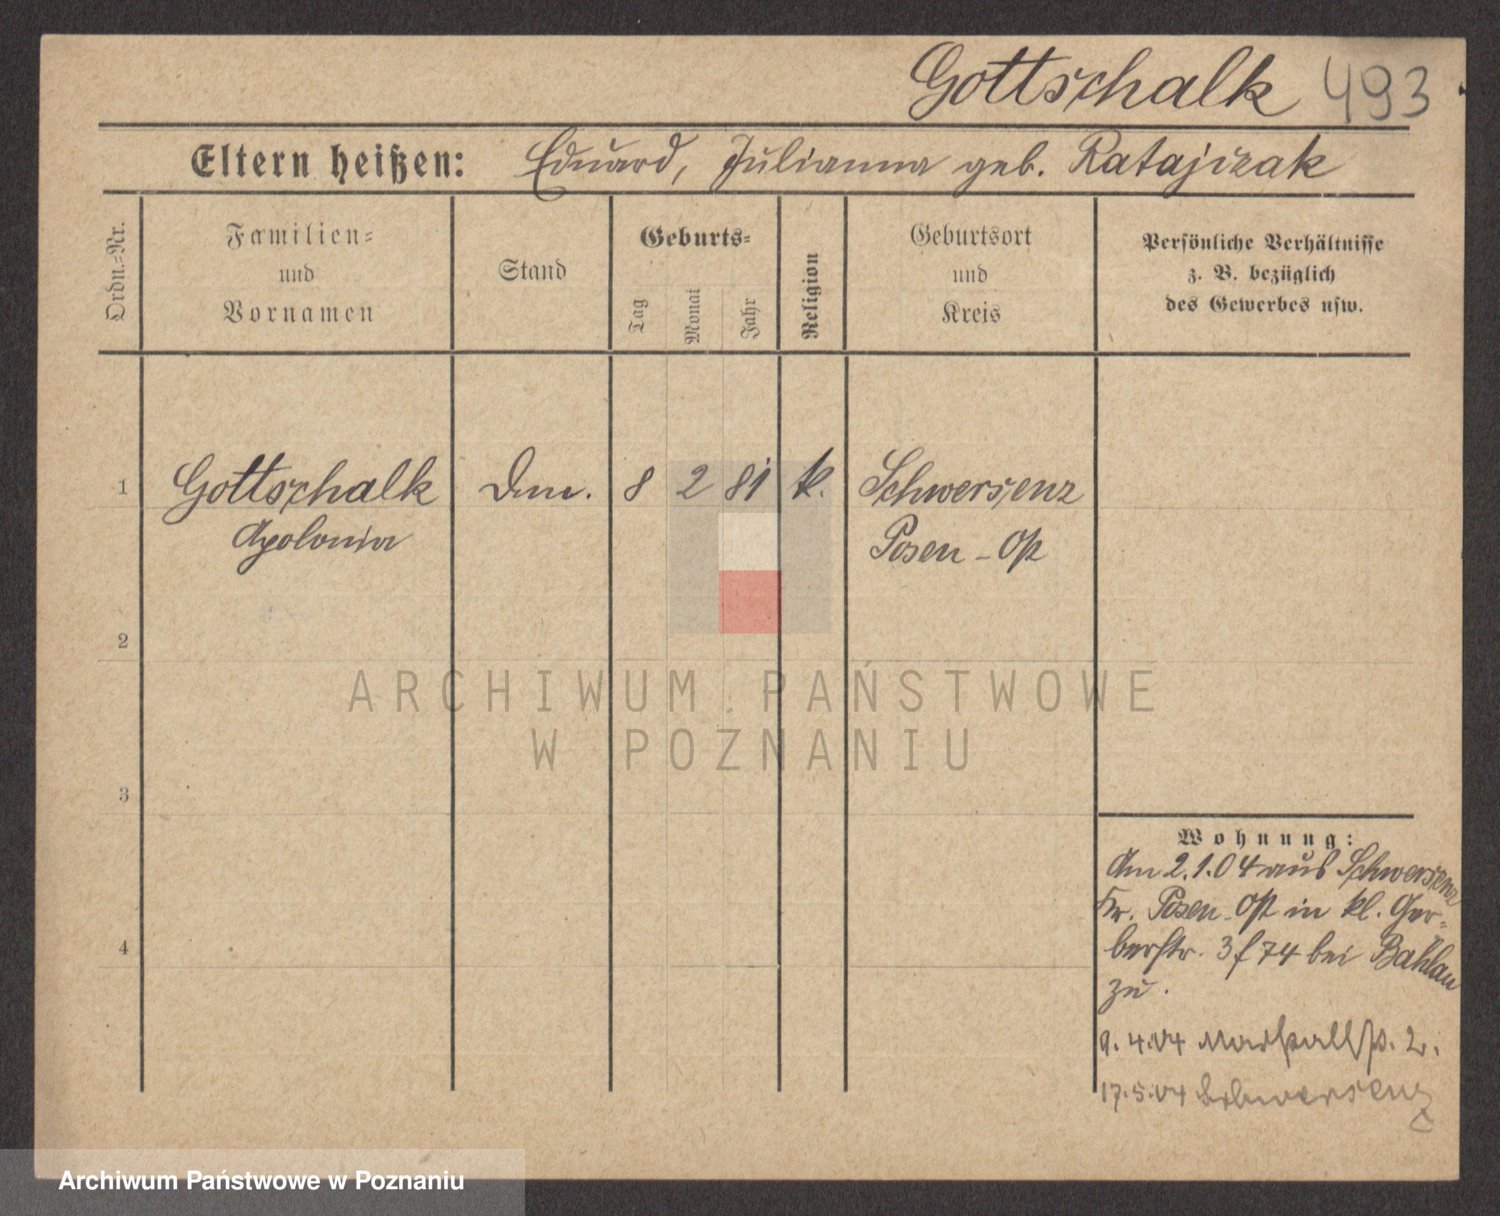 Gottschalk 493
Eltern heißen: Eduard, Julianna geb. Ratajczak
Ordn.-Nr.
Familien-
und
Vornamen
Stand
Geburts-
Tag
Monat
Jahr
Religion
Geburtsort
und
Kreis
Persönliche Verhältnisse
z. B. bezüglich
des Gewerbes usw.
1 Gottschalk 8 2 81 k. Schwersenz
Apolonia Posen-Ost
2
3
4
ARCHIWUM PAŃSTWOWE
W POZNANIU
Wohnung:
Am 2.1.04 aus Schwersenz
Kr. Posen-Ost in kl. Ger-
berstr. 3 f 74 bei Bahlau
zu.
9.4.04 2.
17.5.04 Schwersenz
Archiwum Państwowe w Poznaniu